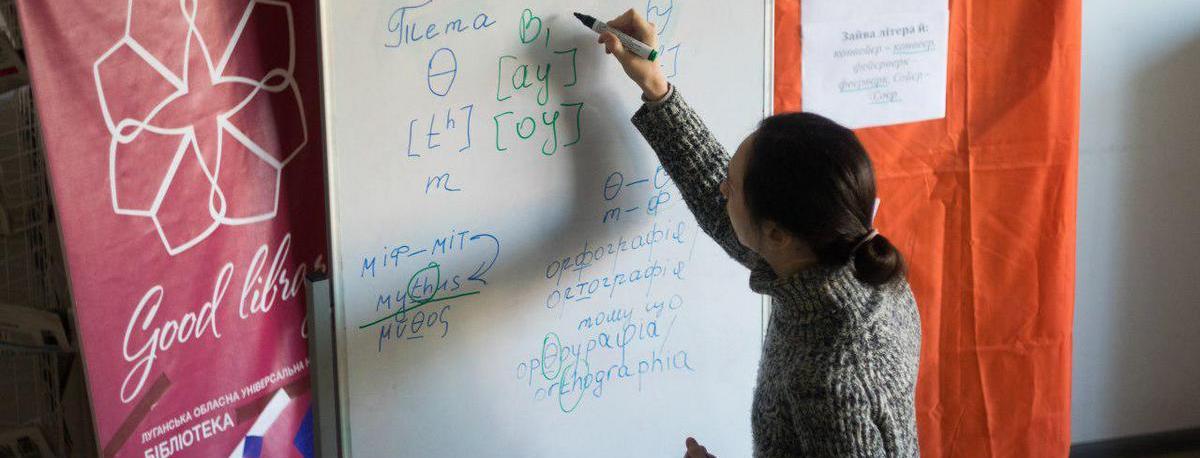 Good libra
ЛУГАНСЬКА ОБЛАСНА УНІВЕРСАЛЬНА Н
БІБЛІОТЕКА
Тета
θ
[tʰ]
т
В,
[ау]
[оу]
θ – t
т – ф
міф – міт
mythus
μῦθος
орфографія
ортографія
тому що
орθ
orthographia
Зайва літера й:
конвойєр – конвеєр,
фойєрверк –
феєрверк, Сойєр –
Соєр